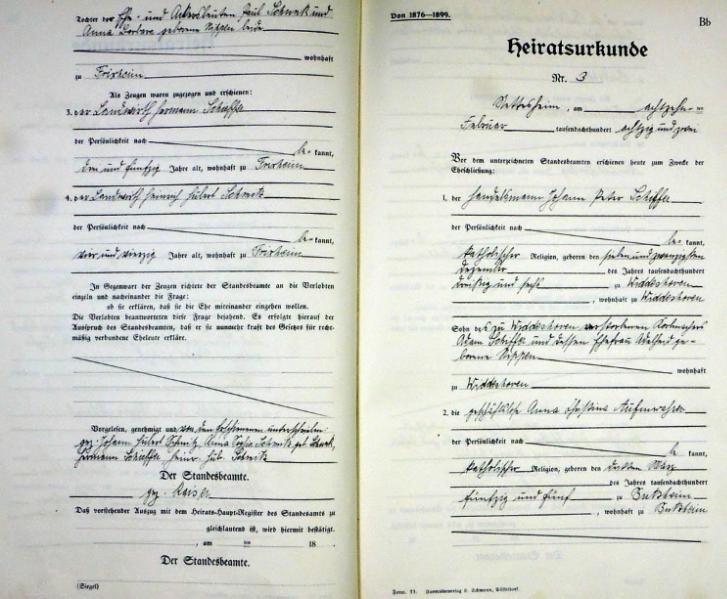 Tochter der Ehe- und Ackersleuten Paul Schunk und
Anna Barbara geborene beide
wohnhaft
zu Frixheim
Als Zeugen waren zugezogen und erschienen:
3. der Landwirth Hermann Schieffer
der Persönlichkeit nach
be- kannt,
drei und fünfzig Jahre alt, wohnhaft zu Frixheim
4. der Landwirth Heinrich Hubert Schmitz
der Persönlichkeit nach
be- kannt,
vier und vierzig Jahre alt, wohnhaft zu Frixheim
In Gegenwart der Zeugen richtete der Standesbeamte an die Verlobten
einzeln und nacheinander die Frage:
ob sie erklären, daß sie die Ehe miteinander eingehen wollen.
Die Verlobten beantworteten diese Frage bejahend. Es erfolgte hierauf der
Ausspruch des Standesbeamten, daß er sie nunmehr kraft des Gesetzes für recht-
mäßig verbundene Eheleute erkläre.
Vorgelesen, genehmigt und von den Erschienenen unterschrieben:
gez. Johann Hubert Schmitz, Anna Schmitz geb. Schunk,
Hermann Schieffer, Heinr. Hub. Schmitz
Der Standesbeamte.
gez. Kaiser
Daß vorstehender Auszug mit dem Heirats-Haupt-Register des Standesamts zu
gleichlautend ist, wird hiermit bestätigt.
, am ten 18
Der Standesbeamte.
(Siegel)
Von 1876—1899.
Bb
Heiratsurkunde
Nr. 3
Nettesheim, am achtzehn-ten
Februar tausendachthundert achtzig und zwei
Vor dem unterzeichneten Standesbeamten erschienen heute zum Zwecke der
Eheschließung:
1. der Handelsmann Johann Peter Schiffer
der Persönlichkeit nach
be- kannt,
katholischer Religion, geboren den sieben und zwanzigsten
Dezember des Jahres tausendachthundert
dreißig und sechs zu Widdeshoven
, wohnhaft zu Widdeshoven
Sohn des zu Widdeshoven verstorbenen
Adam Schiffer und dessen Ehefrau Adelheid ge-
borene
wohnhaft
zu Widdeshoven
2. die geschäftslose Anna Christina Aufenwasser
der Persönlichkeit nach
be- kannt,
katholischer Religion, geboren den dritten März
des Jahres tausendachthundert
fünfzig und fünf zu Butzheim
, wohnhaft zu Butzheim
Form. 11.